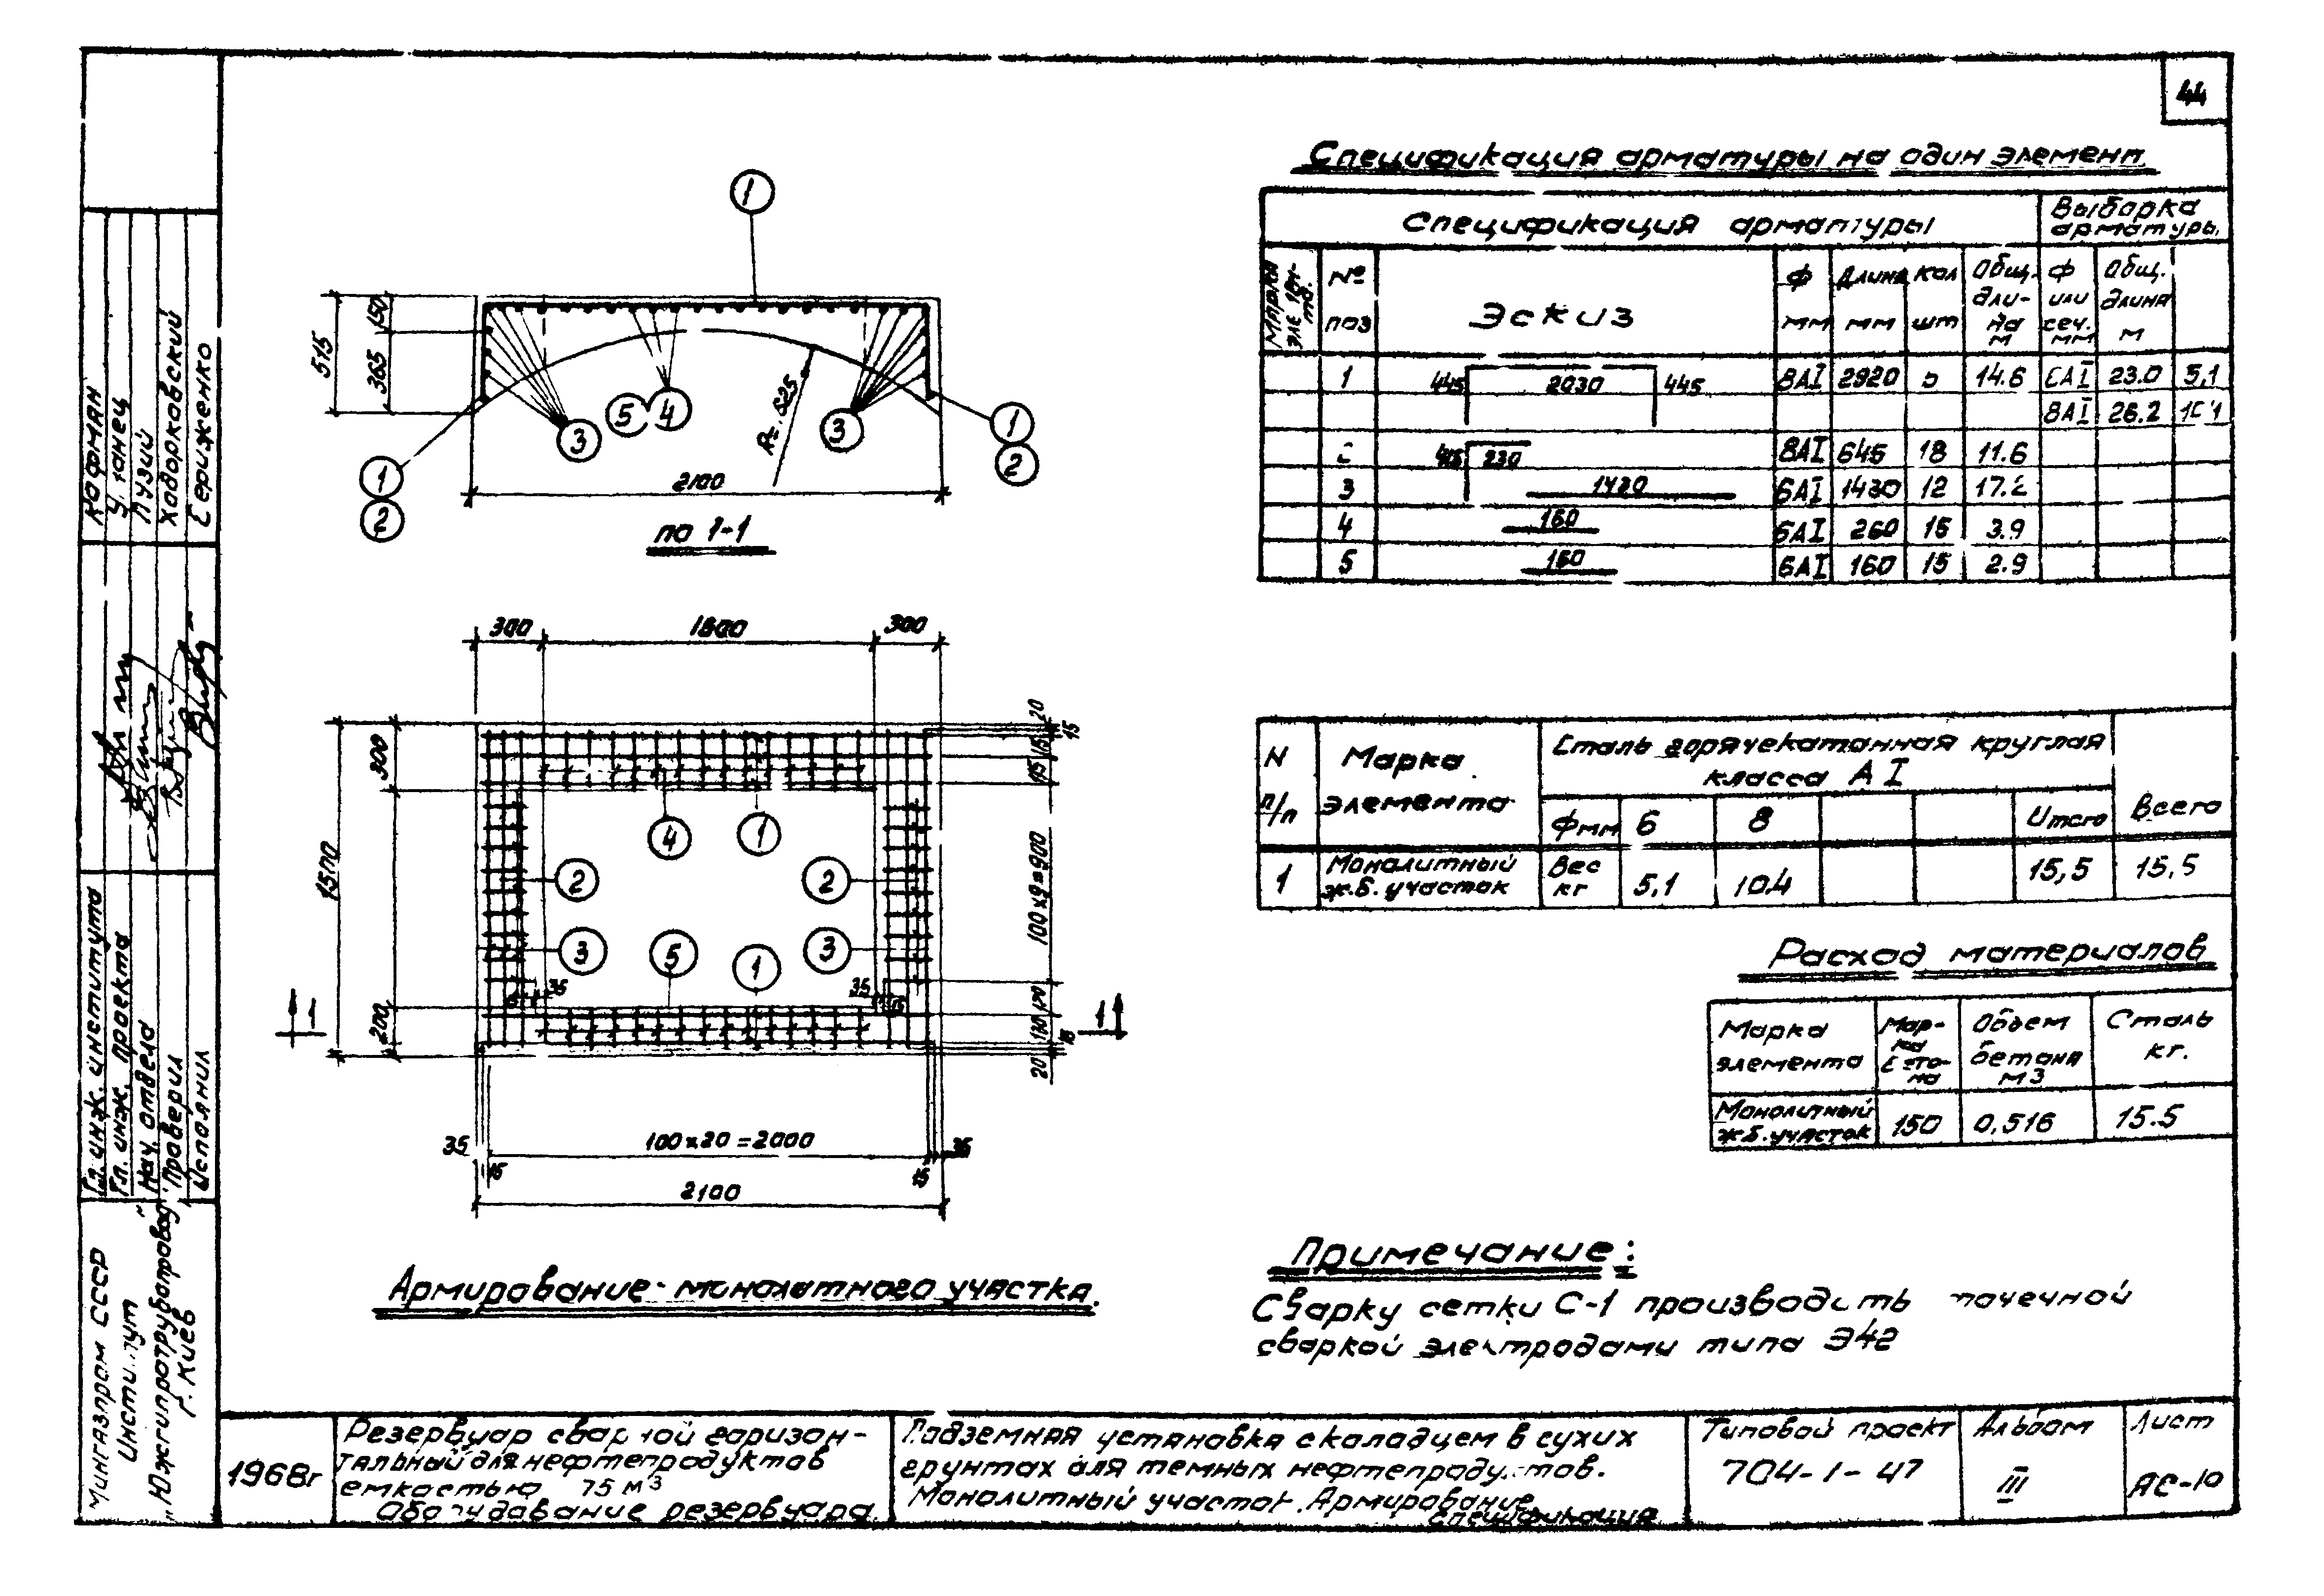 44
Спецификация арматуры на один элемент
Спецификация арматуры
Выборка арматуры
Марка элемен-та.
№ поз
Эскиз
Ф мм
Длина мм
Кол шт
Общ. дли-на м
Ф или сеч. мм
Общ. длина м
1 445 2030 445 8АI 2920 5 14.6 6АI 23.0 5,1
8АI 26.2
445 230 8АI 645 18 11.6
3 1430 6АI 1430 12 17.2
4 6АI 260 15 3.9
5 160 6АI 160 15 2.9
1
515
150
365
3
5
4
R=.825
3
1
2
1
2
2100
по 1-1
300
1800
300
20
15
15
15
300
1500
200
4
1
2
2
3
5
1
3
100х9=900
35
35
15
1
1
120
130
15
20
35
100х20=2000
35
15
15
2100
Армирование монолитного участка.
N п/п
Марка элемента
Сталь горячекатанная круглая
класса А I
Фмм 6 8 Итого
Всего
1 Монолитный ж.б. участок Вес кг 5,1 10.4 15,5 15,5
Расход материалов
Марка элемента
Мар-ка бето-на
Объем бетона м3
Сталь кг.
Монолитный ж.б. участок 150 0,516 15.5
Примечание:
Сварку сетки С-1 производить точечной
сваркой электродами типа Э42
Кофман
Пузий
Ходорковский
Сериженко
Гл. инж. института
Гл. инж. проекта
Нач. отдела
Проверил
Исполнил
Мингазпром СССР
Институт
"Южгипротрубопровод"
г. Киев
1968г
Резервуар сварной горизон-
тальный для нефтепродуктов
емкостью 75 м3
Оборудование резервуара.
Подземная установка с колодцем в сухих
грунтах для темных нефтепродуктов.
Монолитный участок. Армирование
спецификация
Типовой проект
704-1-47
Альбом
III
Лист
АС-10